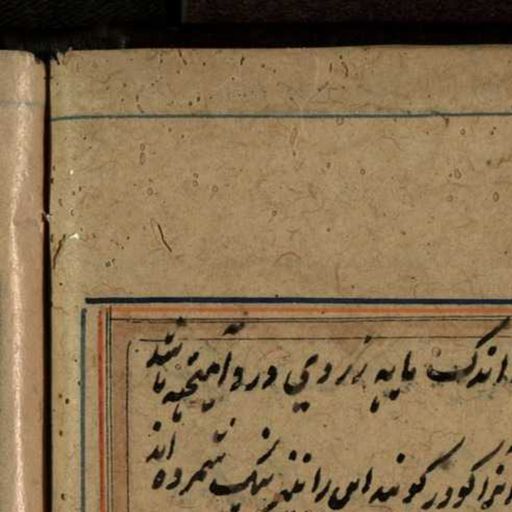 اندک مایه زردی درو آمیخته باشد
آنرا کودر کویند اس را نیز نیک شمرده اند